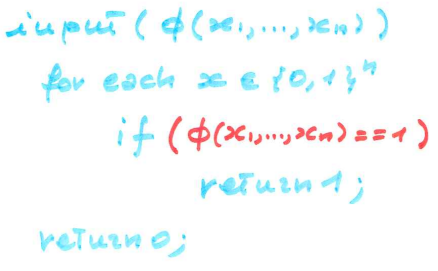 input ( ϕ(x₁,...,xₙ) )
for each x ∈ {0,1}ⁿ
if (ϕ(x₁,...,xₙ) == 1)
return 1;
return 0;